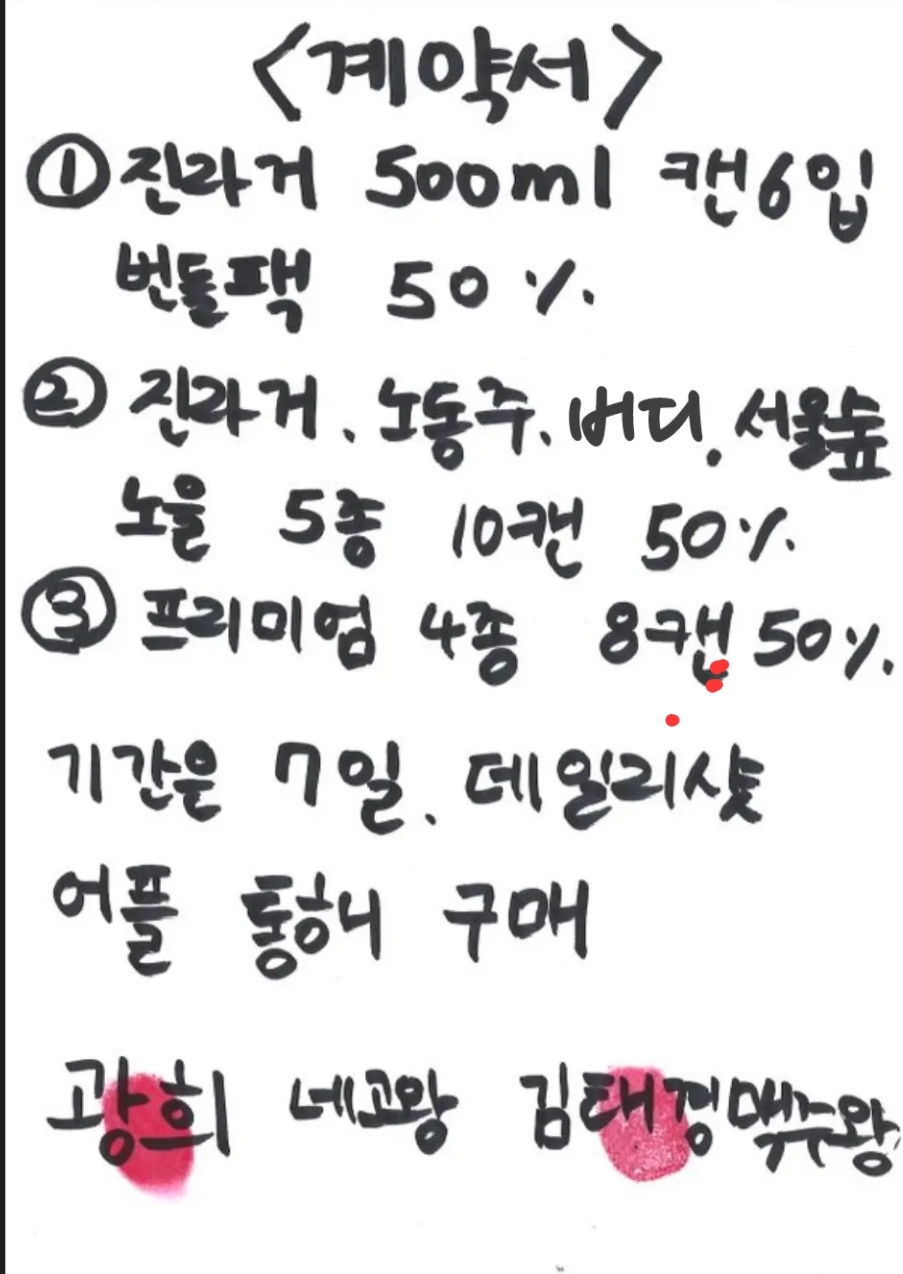 <계약서>
① 진라거 500ml 캔6입
번들팩 50%.
② 진라거. 노동주. 버디. 서울숲
노을 5종 10캔 50%.
③ 프리미엄 4종 8캔 50%.
기간은 7일. 데일리샷
어플 통해 구매
광희 네고왕 김태경 맥주왕